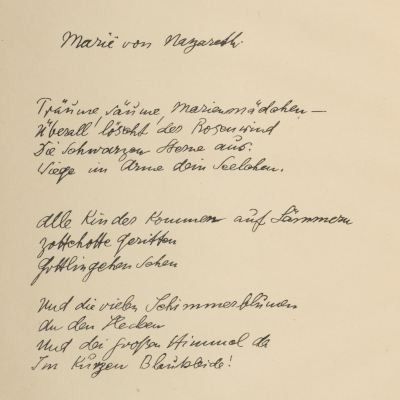 Marië von Nazareth.
Träume, säume, Marienmädchen —
Überall löscht der Rosenwind
Die schwarzen Sterne aus.
Wiege im Arme dein Seelchen.
Alle Kinder kommen auf Lämmern
zottehotte geritten
Gottlingchen sehen
Und die vielen Schimmerblumen
An den Hecken
Und der großen Himmel da
Im kurzen Blaukleide!